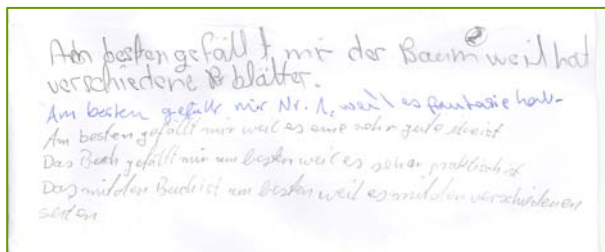 Am besten gefällt mir der Baum weil hat
verschiedene B blätter.
Am besten gefällt mir Nr. 1, weil es fantasie hat.
Am besten gefällt mir weil es eine sehr gute idee ist
Das Buch gefällt mir am besten weil es sehr praktisch ist
Das mit den Buch ist am besten weil es mit den verschiedenen
seiten